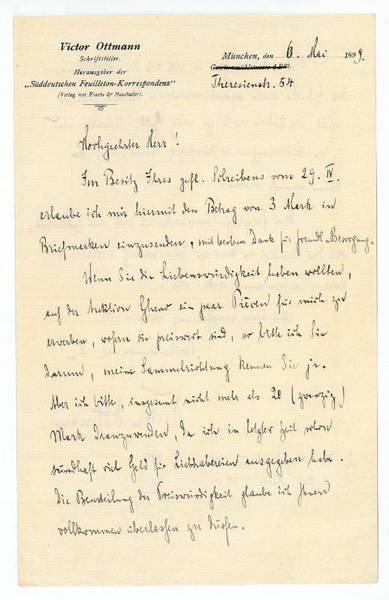 Victor Ottmann
Schriftsteller.
Herausgeber der
„Süddeutschen Feuilleton-Korrespondenz“
(Verlag von Franke & Haushalter).
München, den 6. Mai 1899.
Theresienstr. 54
Hochgeehrter Herr!
Im Besitz Ihres gefl. Schreibens vom 29. IV.
erlaube ich mir hiermit den Betrag von 3 Mark in
Briefmarken einzusenden, mit bestem Dank für freundl. Besorgung.
Wenn Sie die Liebenswürdigkeit haben wollten,
auf der Auktion ein paar Piècen für mich zu
erwerben, wofern sie preiswert sind, so bitte ich Sie
darum, meine Sammelrichtung kennen Sie ja.
Aber ich bitte, insgesamt nicht mehr als 20 (zwanzig)
Mark dranzuwenden, da ich in letzter Zeit schon
sündhaft viel Geld für Liebhabereien ausgegeben habe.
Die Beurteilung der Preiswürdigkeit glaube ich Ihnen
vollkommen überlassen zu dürfen.